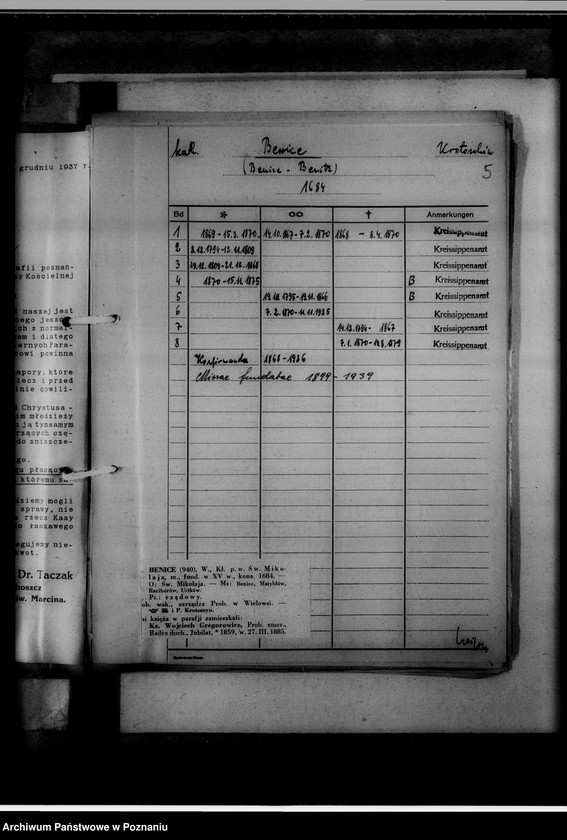 grudniu 1937 r.
afii poznań-
y Kościelnej
i naszej jest
ych z normal-
em i dlatego
ernych Para-
owi powinna
apory, które
lecz i przed
inie cywili-
i Chrystusa -
im młodzieży
a ją tymsamym
rzących czę-
do zniszcze-
go.
któremu za-
dziemy mogli
sprawy, nie
a rzecz Kasy
o łaskawego
egujemy nie-
kwot.
Dr. Taczak
boszcz
św. Marcina.
kat. Benice Krotoschin
(Benice - Benitz) 5
1684
Bd * ∞ † Anmerkungen
1 1869 - 15.3. 1870 14.10.1867 - 7.2. 1870 1868 - 6.4. 1870 Kreissippenamt
2 2.12.1794-12.11.1809 Kreissippenamt
3 29.12.1809-21.12.1868 Kreissippenamt
4 1870 - 15.11.1875 B Kreissippenamt
5 B Kreissippenamt
6 7.2.1870-11.11.1925 Kreissippenamt
7 14.12.1794 - 1867 Kreissippenamt
8 7.1.1870-12.8.1879 Kreissippenamt
Konfirmanda 1868 - 1936
Missae fundatae 1899 - 1939
BENICE (940), W., Kł. p. w. Św. Miko-
łaja, m., fund. w XV w., kons. 1684. —
O: Św. Mikołaja. — Ms: Benice, Matyldów,
Raciborów, Ustków.
Pt.: rządowy.
ob. wak., zarządza Prob. w Wielowsi. —
i P. Krotoszyn.
si księża w parafji zamieszkali:
Ks. Wojciech Gregorowicz, Prob. emer.,
Radca duch., Jubilat, * 1859, w. 27. III. 1885.
Archiwum Państwowe w Poznaniu